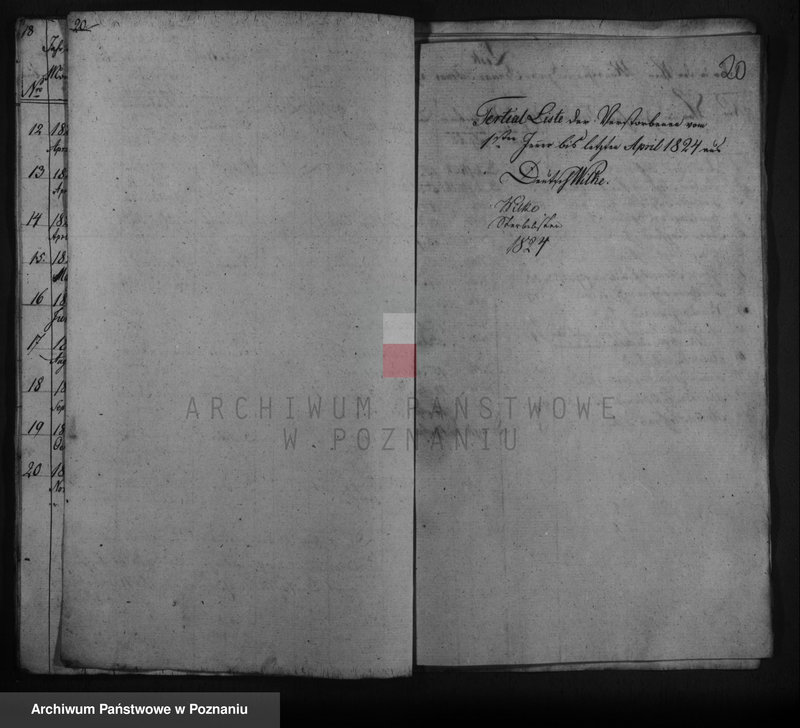 18
Nro
12 18
Apr
13 18
Ap
14 18
Apri
15 18
Ma
16 18
Jun
17 18
Aug
18 18
Sep
19 18
Oc
20 18
No
20
20
Tertial Liste der Verstorbenen vom
1sten Jener bis letzten April 1824 aus
Deutsch Wilke.
Wilke
Sterbelisten
1824
ARCHIWUM PAŃSTWOWE
W POZNANIU
Archiwum Państwowe w Poznaniu